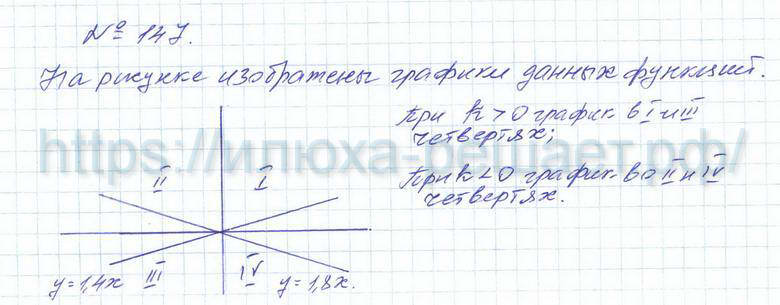 № 147.
На рисунке изображены графики данных функций.
При k > 0 график в I и III
четвертях;
При k < 0 график во II и IV
четвертях.
https://илюха-решает.рф/
II I
III IV
y = 1,4x y = 1,8x.